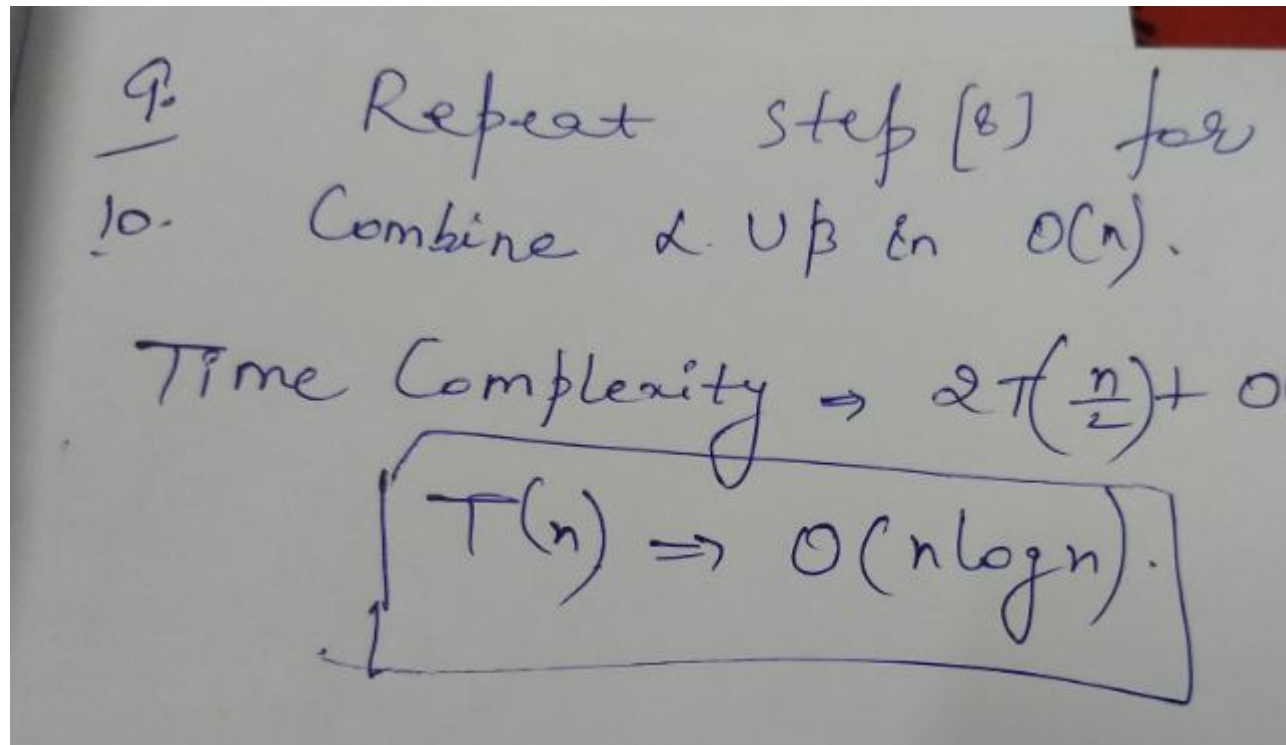 9. Repeat step [8] for
10. Combine α ∪ β in O(n).
Time Complexity → 2T(n/2) + O
T(n) ⇒ O(n log n).